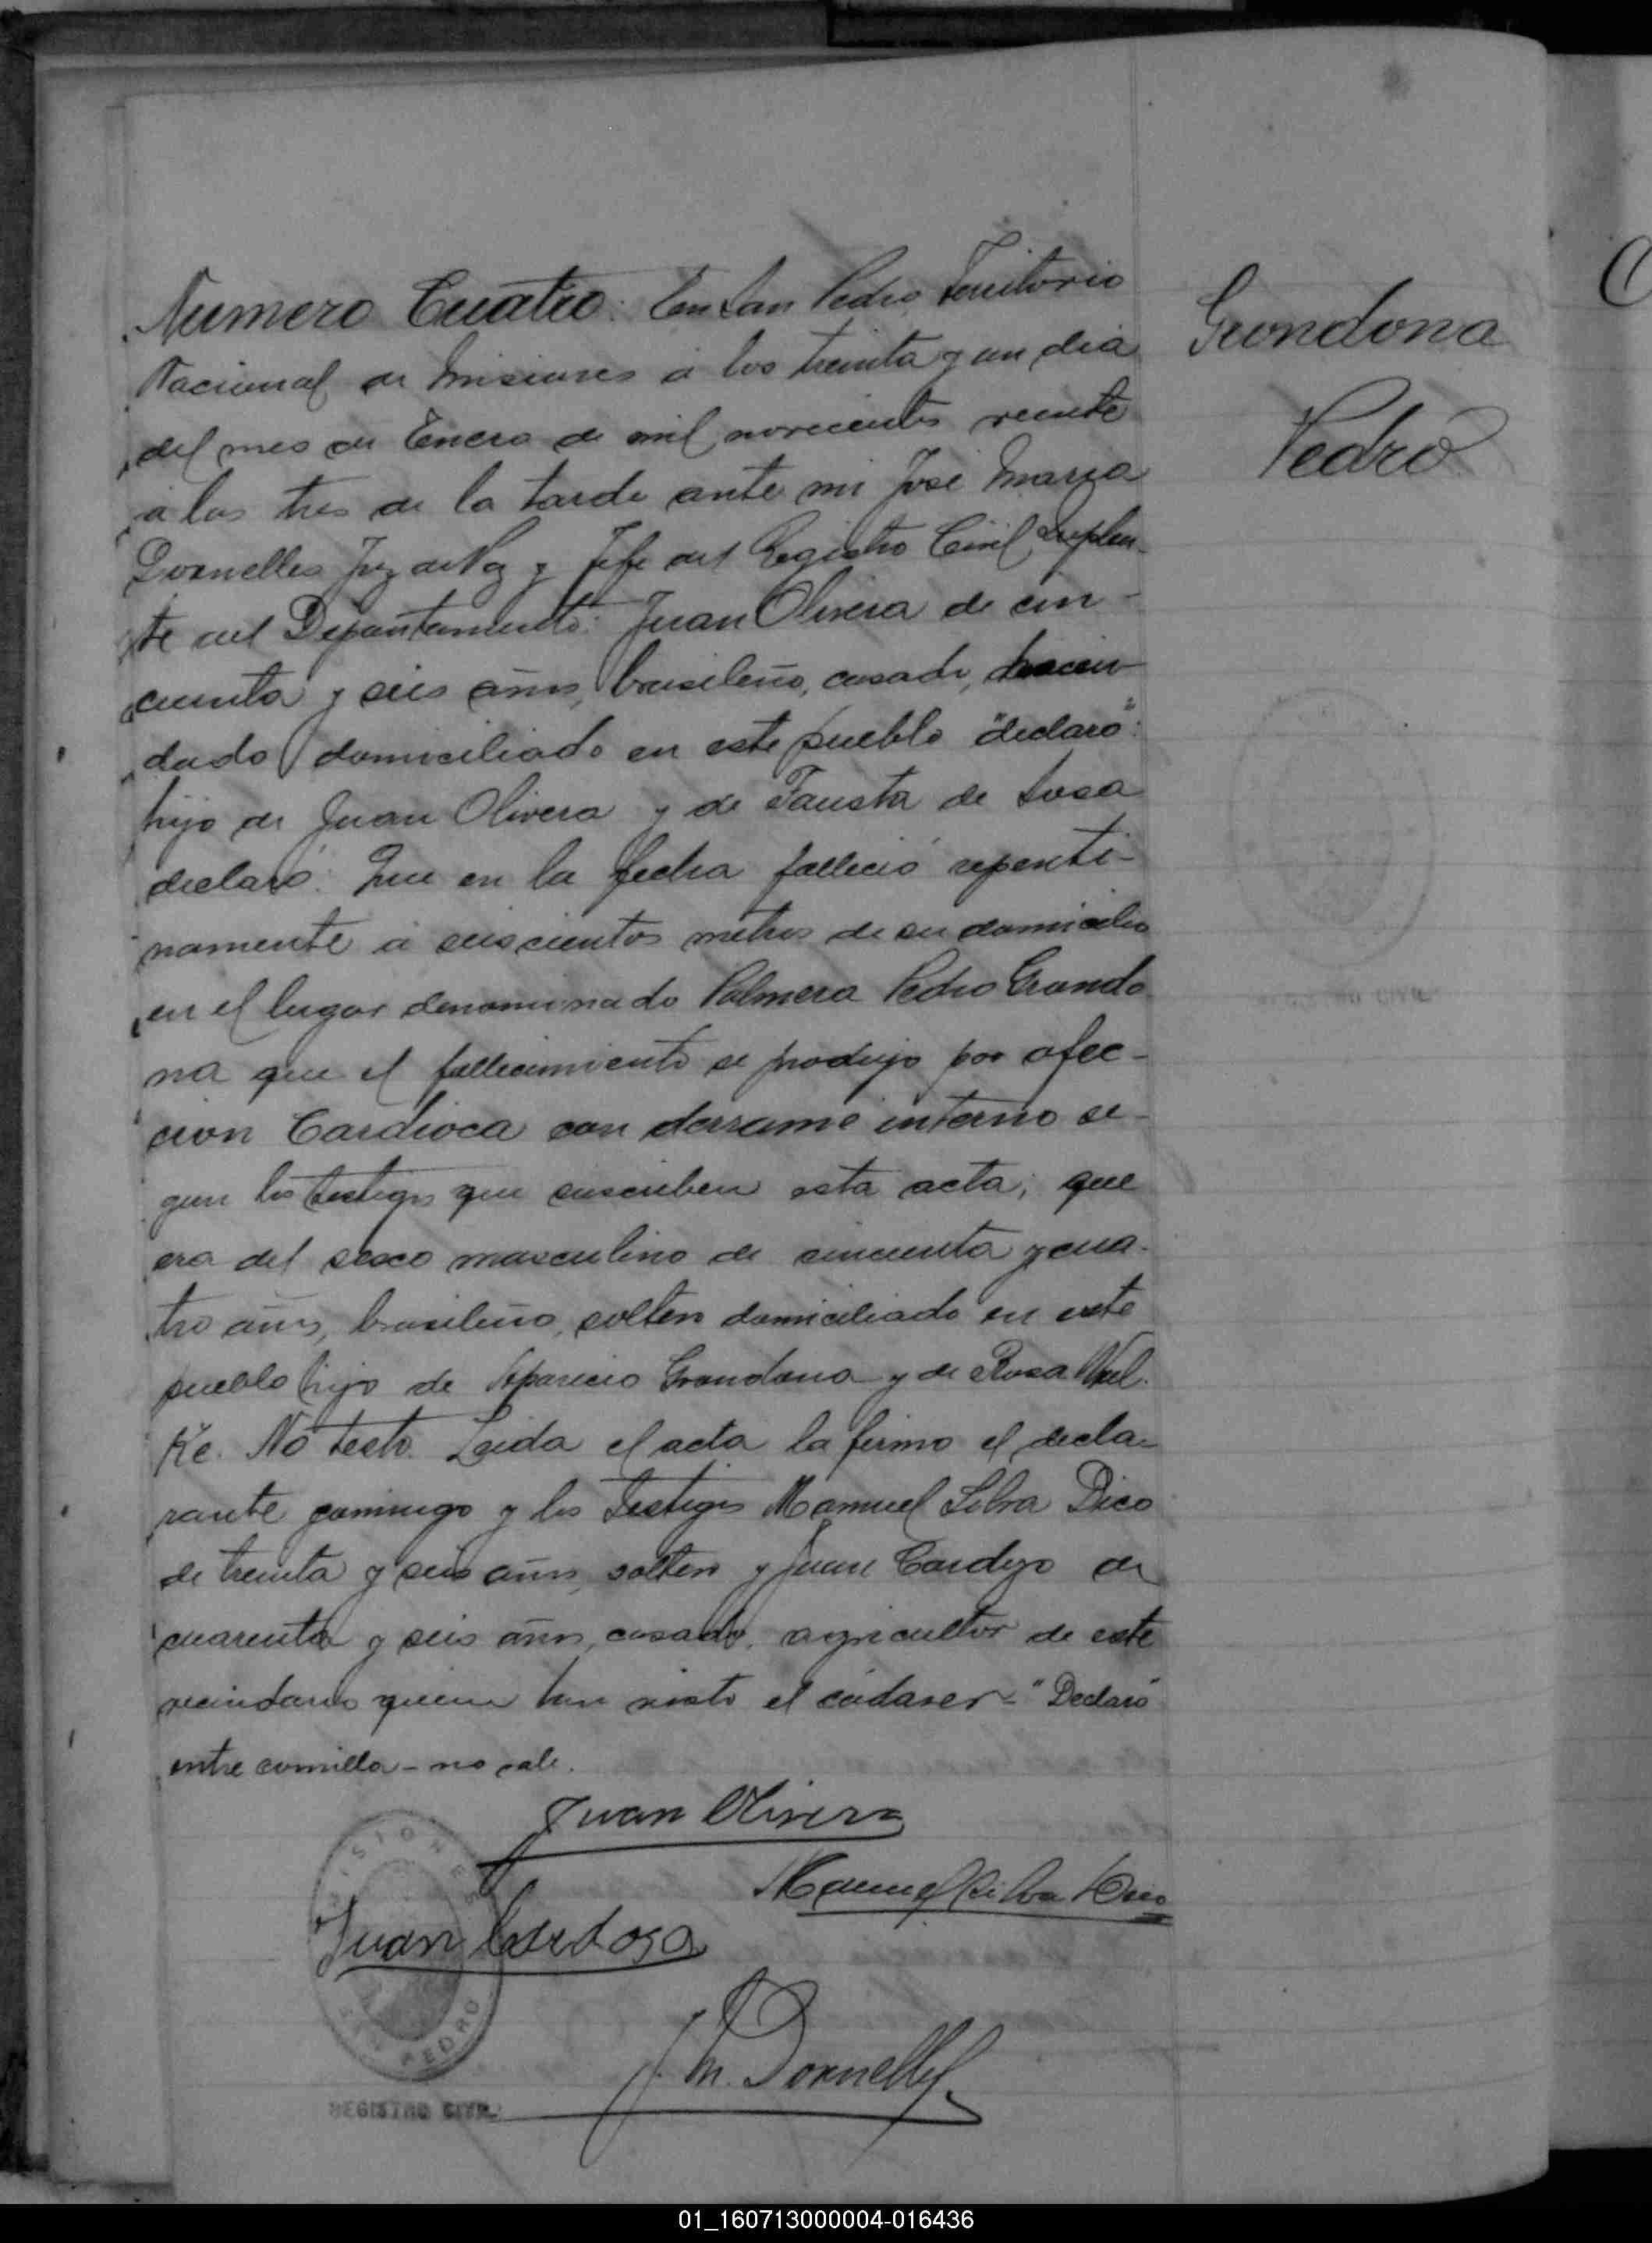 Numero Cuatro: En San Pedro, Territorio
Nacional de Misiones á los treinta y un dia
del mes de Enero de mil novecientos veinte
á las tres de la tarde ante mi José Maria
Dornelles Juez de Paz y Jefe del Registro Civil Suplen-
te del Departamento: Juan Olivera de cin-
cuenta y seis años, brasileño, casado,
dado domiciliado en este pueblo "declaró":
hijo de Juan Olivera y de Fausta de Sosa
declaró: Que en la fecha falleció repenti-
namente á seiscientos metros de su domicilio
en el lugar denominado Palmera Pedro Grondo
na que el fallecimiento se produjo por afec-
cion Cardioca con derrame interno se-
gun los testigos que suscriben esta acta; que
era del sexo masculino de cincuenta y cua-
tro años, brasileño, soltero domiciliado en este
pueblo hijo de Aparicio Grondona y de Rosa
Ke. No testó. Leida el acta la firmo el decla-
rante conmigo y los Testigos Manuel Silva Dico
de treinta y seis años, soltero y Juan Cardozo de
cuarenta y seis años, casado, agricultor de este
vecindario quienes han visto el cádaver - "Declaró"
entre comilla - no vale.
Juan Olivera
Manuel Silva Dico
Juan Cardozo
J. M. Dornelles
MISIONES
SAN PEDRO
REGISTRO CIVIL
Grondona
Pedro
REGISTRO CIVIL
01_160713000004-016436